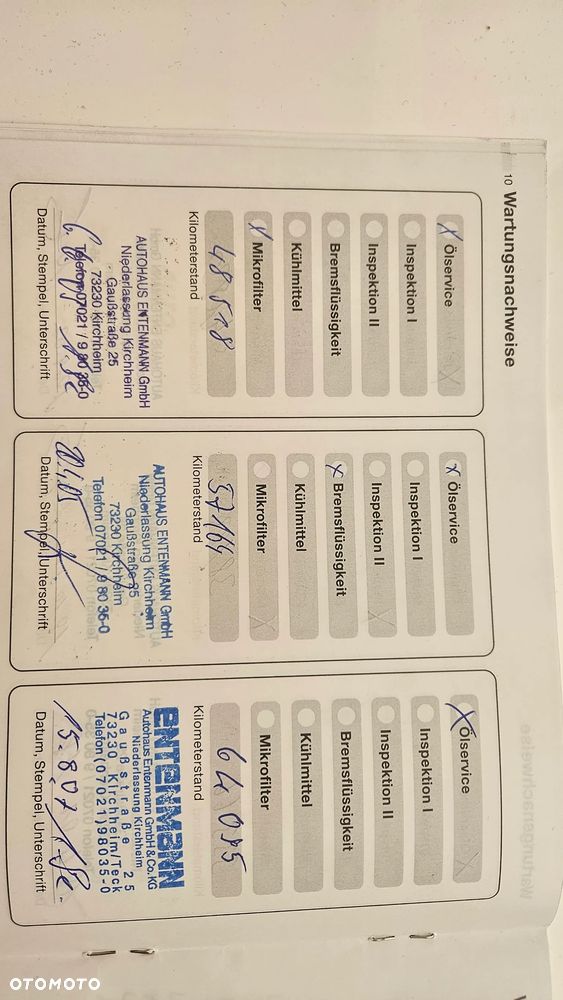 10 Wartungsnachweise
X Ölservice
Inspektion I
Inspektion II
Bremsflüssigkeit
Kühlmittel
X Mikrofilter
Kilometerstand
AUTOHAUS ENTENMANN GmbH
Niederlassung Kirchheim
Gaußstraße 25
73230 Kirchheim
Telefon 07021 / 9 80 35-0
Datum, Stempel, Unterschrift
X Ölservice
Inspektion I
Inspektion II
X Bremsflüssigkeit
Kühlmittel
Mikrofilter
37164
Kilometerstand
AUTOHAUS ENTENMANN GmbH
Niederlassung Kirchheim
Gaußstraße 25
73230 Kirchheim
Telefon 07021 / 9 80 35-0
20.4.05
Datum, Stempel, Unterschrift
X Ölservice
Inspektion I
Inspektion II
Bremsflüssigkeit
Kühlmittel
Mikrofilter
Kilometerstand
ENTENMANN
Autohaus Entenmann GmbH & Co. KG
Niederlassung Kirchheim
Gaußstraße 25
73230 Kirchheim/Teck
Telefon (07021) 98035-0
15.8.07
Datum, Stempel, Unterschrift
OTOMOTO